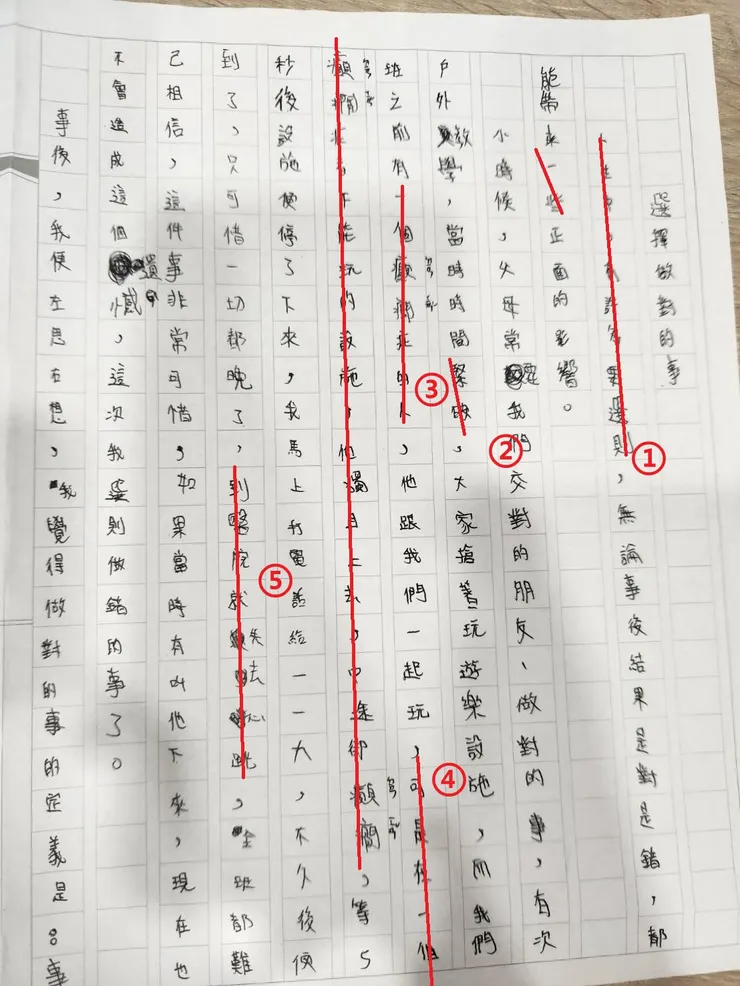 選擇做對的事
人生中，有許多要選則，無論事後結果是對是錯，都
能帶來一些正面的影響。
小時候，父母常我們交對的朋友、做對的事，有次
戶外教學，當時時間緊，大家搶著玩遊樂設施，而我們
班之前有一個癲癇症的人，他跟我們一起玩，可是在一個
癲癇症不能玩的設施，他獨自上去，中途卻癲癇，等5
秒後設施便停了下來，我馬上打電話給一一九，不久後便
到了，只可惜一切都晚了，到醫院就失去心跳，全班都難
己相信，這件事非常可惜，如果當時有叫他下來，現在也
不會造成這個遺憾，這次我選則做錯的事了。
事後，我便左思右想，我覺得做對的事的定義是：事
①
②
③
④
⑤